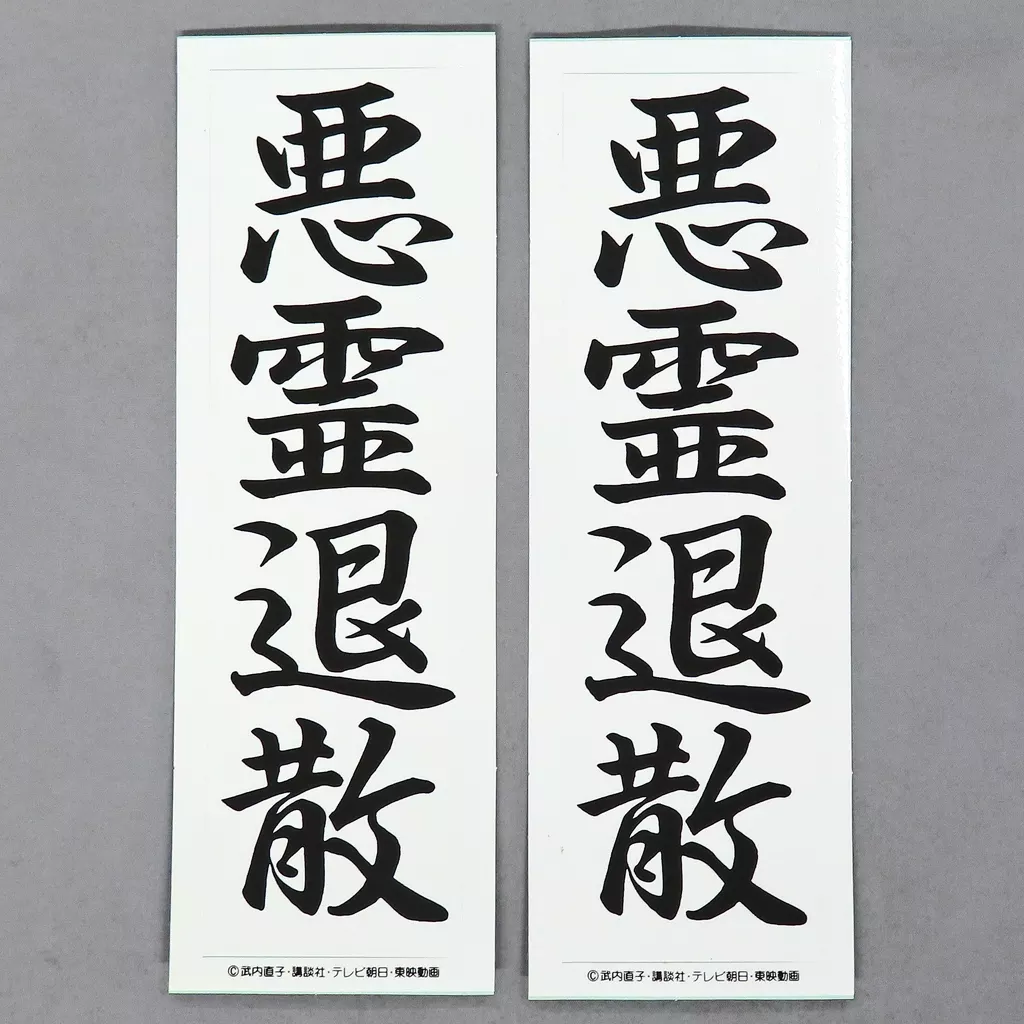 悪霊退散
©武内直子・講談社・テレビ朝日・東映動画
悪霊退散
©武内直子・講談社・テレビ朝日・東映動画